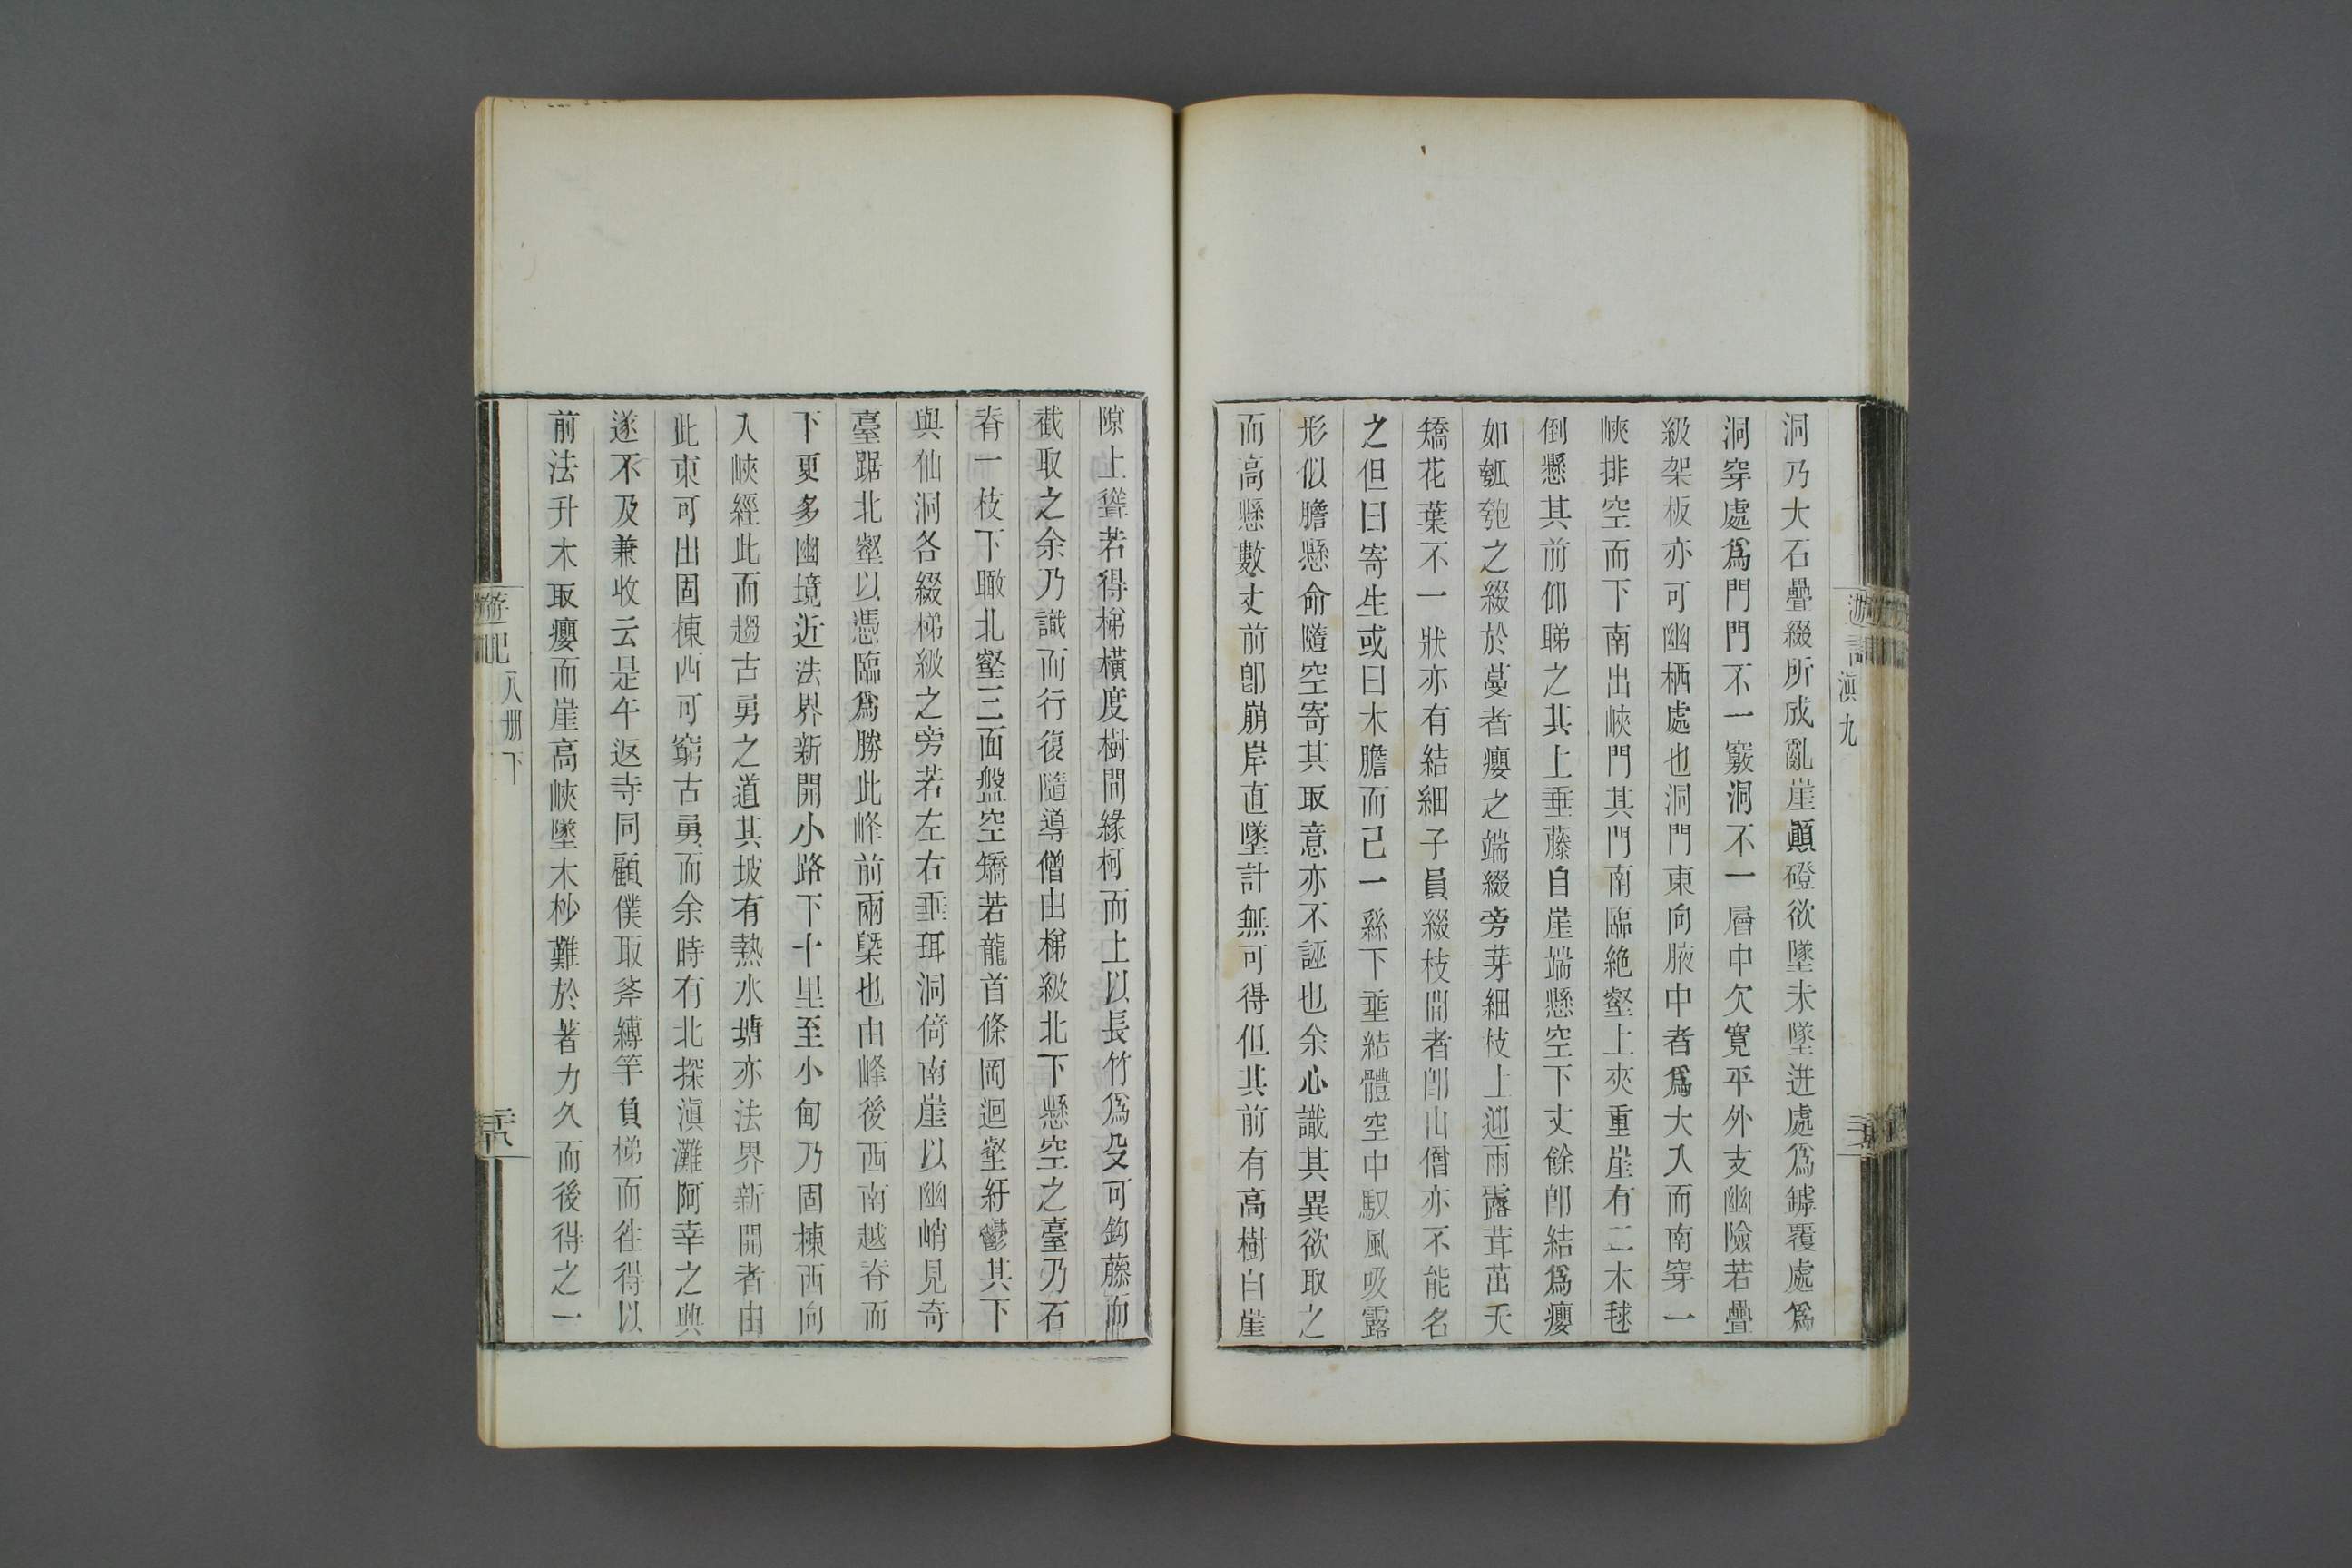 洞乃大石疊綴所成亂崖顚磴欲墜未墜迸處爲罅覆處爲
洞穿處爲門門不一竅洞不一層中欠寬平外支幽險若疊
級架板亦可幽栖處也洞門東向腋中者爲大入而南穿一
峽排空而下南出峽門其門南臨絶壑上夾重崖有二木毬
倒懸其前仰睇之其上垂藤自崖端懸空下丈餘卽結爲癭
如瓠匏之綴於蔓者癭之端綴旁芽細枝上迎雨露茸茁夭
矯花葉不一狀亦有結細子員綴枝間者卽山僧亦不能名
之但曰寄生或曰木膽而已一絲下垂結體空中馭風吸露
形似膽懸命隨空寄其取意亦不誣也余心識其異欲取之
而高懸數丈前卽崩岸直墜計無可得但其前有高樹自崖
遊記
滇九
隙上聳若得梯橫度樹間緣柯而上以長竹爲殳可鈎藤而
截取之余乃識而行復隨導僧由梯級北下懸空之臺乃石
脊一枝下瞰北壑三面盤空矯若龍首條岡迴壑紆鬱其下
與仙洞各綴梯級之旁若左右垂珥洞倚南崖以幽峭見奇
臺踞北壑以憑臨爲勝此峰前兩槩也由峰後西南越脊而
下更多幽境近法界新開小路下十里至小甸乃固棟西向
入峽經此而趨古勇之道其坡有熱水塘亦法界新開者由
此東可出固棟西可窮古勇而余時有北探滇灘阿幸之興
遂不及兼收云是午返寺同顧僕取斧縛竿負梯而往得以
前法升木取癭而崖高峽墜木杪難於著力久而後得之一
遊記
八册下